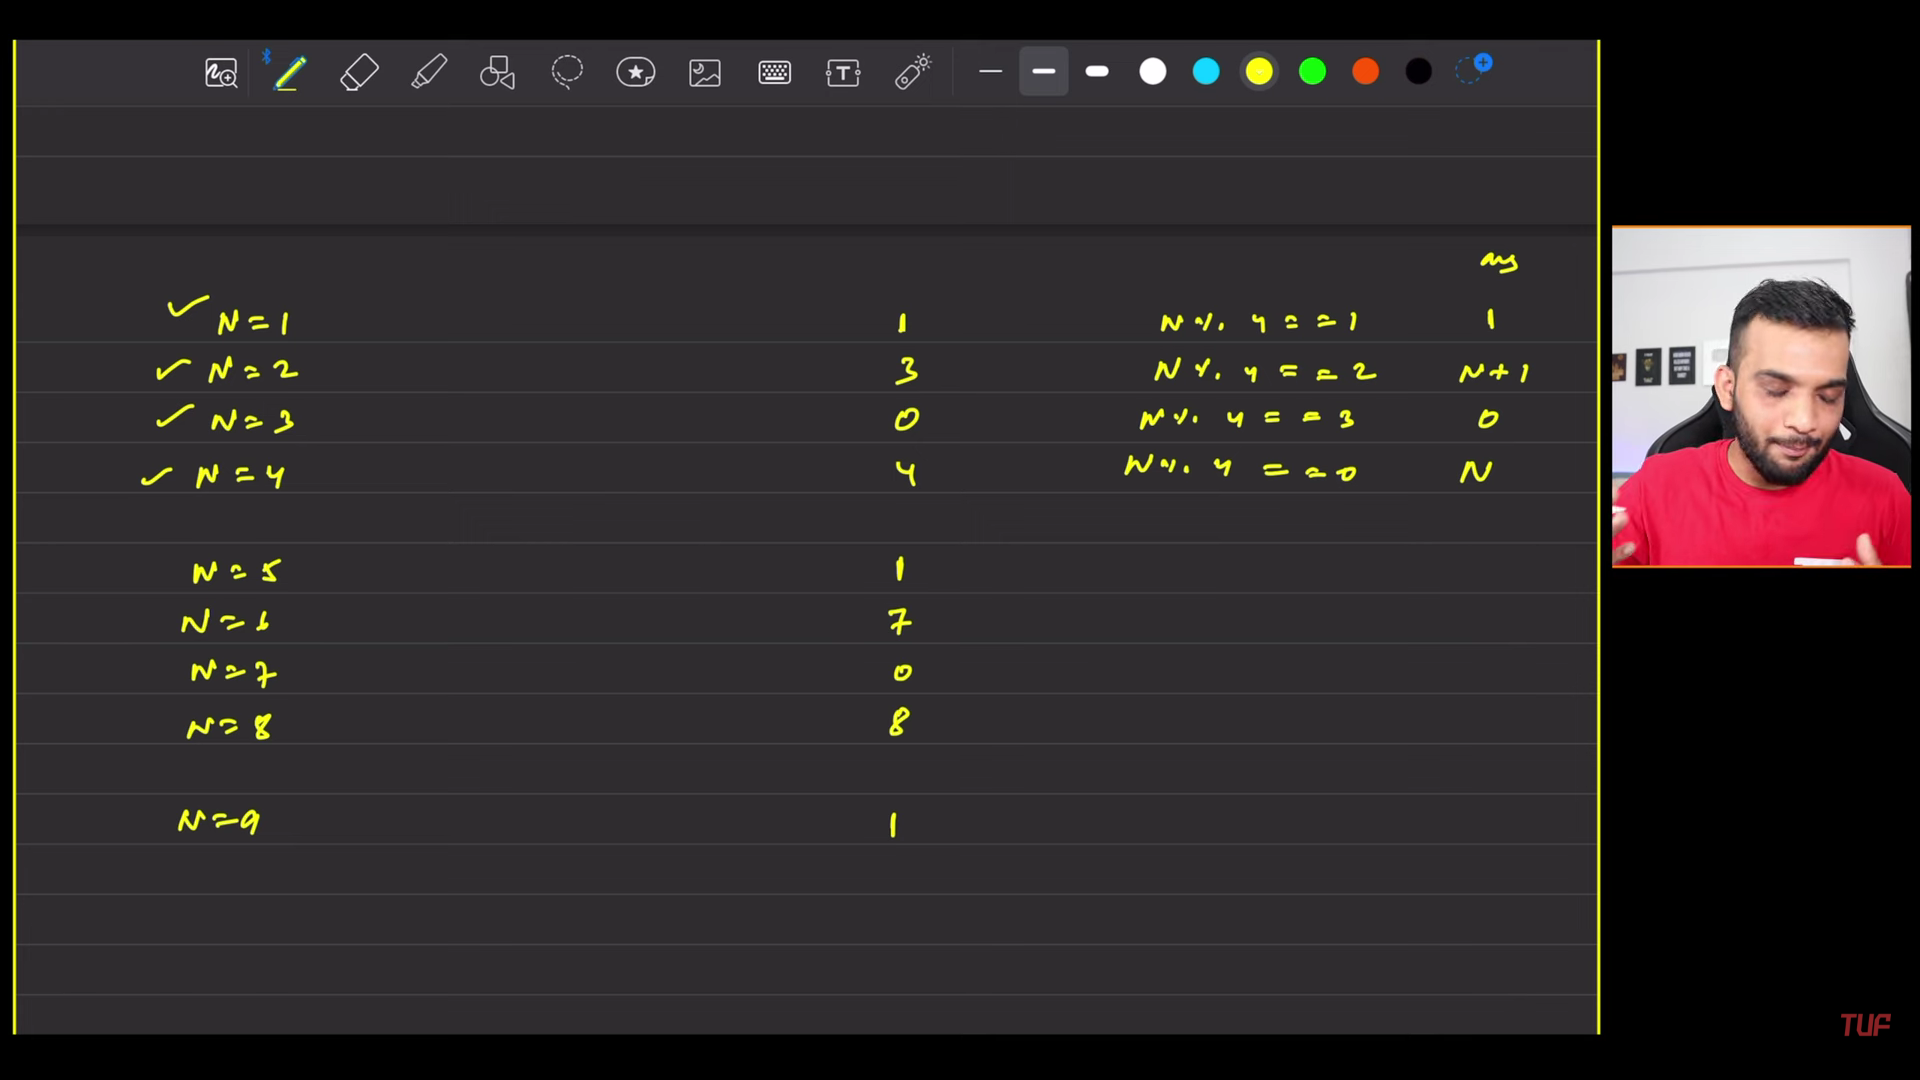 ans
N=1 1 N%4==1 1
N=2 3 N%4==2 N+1
N=3 0 N%4==3 0
N=4 4 N%4==0 N
N=5 1
N=6 7
N=7 0
N=8 8
N=9 1
TUF